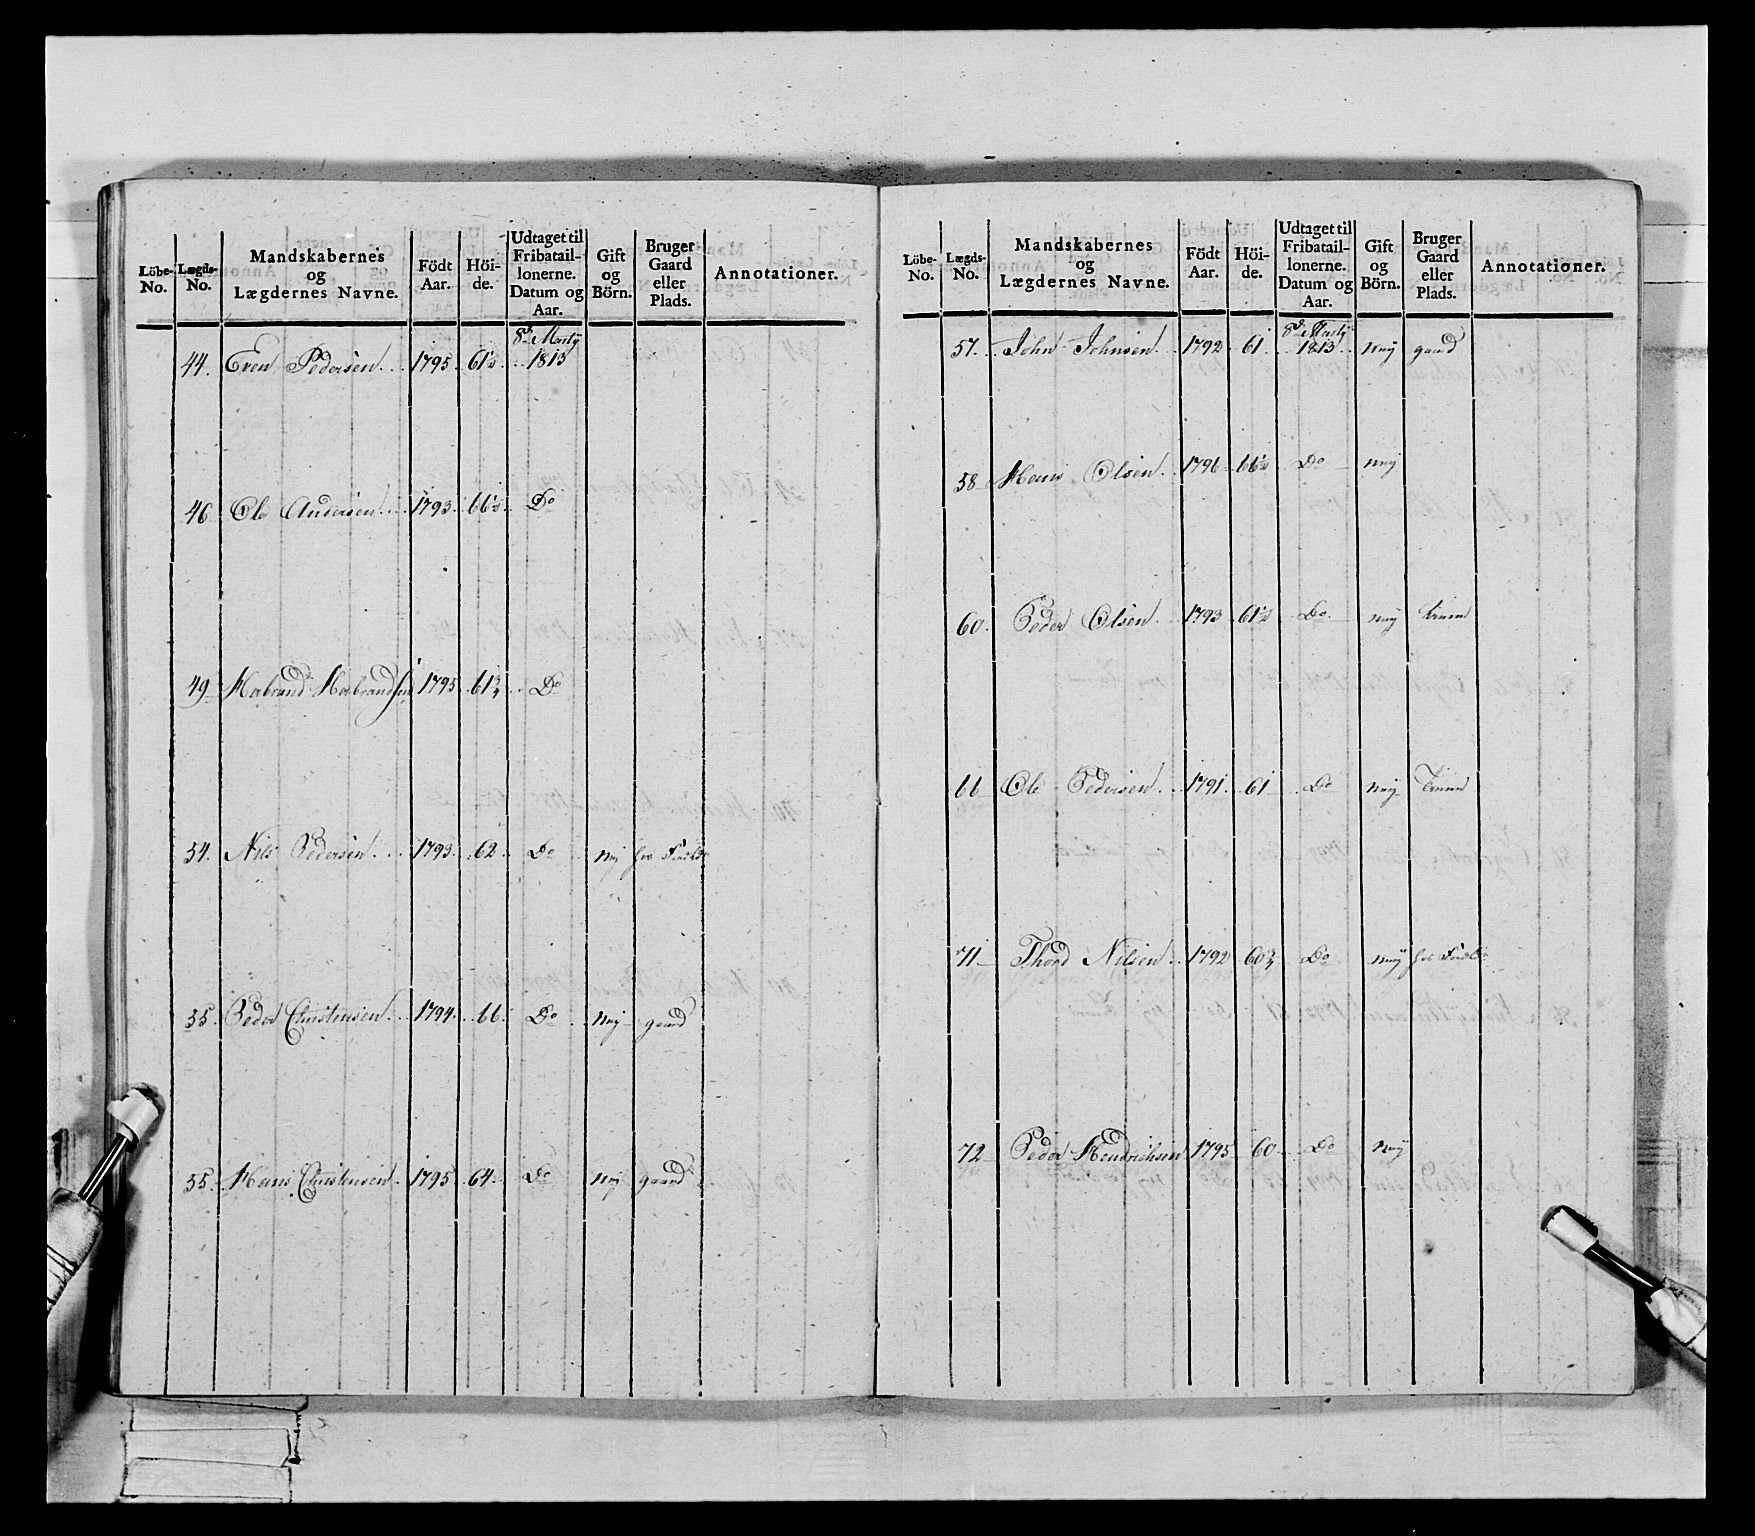 Löbe-No. Lægds-No. Mandskabernes og Lægdernes Navne. Födt Aar. Höi-de. Udtaget til Fribatail-lonerne. Datum og Aar. Gift og Börn. Bruger Gaard eller Plads. Annotationer.
44. Even Pedersen 1795 61½ 8de Marty 1813
46 Ole Andersen 1793 66½ Do
49 Herbrand Herbrandsen 1795 61¾ Do
54. Nils Pedersen 1793 62 Do nej hos
55. Peder Christensen 1794 66 Do nej gaard
55. Hans Christensen 1795 64 Do nej gaard
Löbe-No. Lægds-No. Mandskabernes og Lægdernes Navne. Födt Aar. Höi-de. Udtaget til Fribatail-lonerne. Datum og Aar. Gift og Börn. Bruger Gaard eller Plads. Annotationer.
57. John Johnsen 1792 61 8de Marty 1813 nej gaard
58 Hans Olsen 1796 66½ Do nej
60. Peder Olsen 1793 61½ Do nej
66 Ole Pedersen 1791 61 Do nej
71 Thord Nilsen 1792 60¾ Do nej hos
72 Peder Hendrichsen 1795 60 Do nej